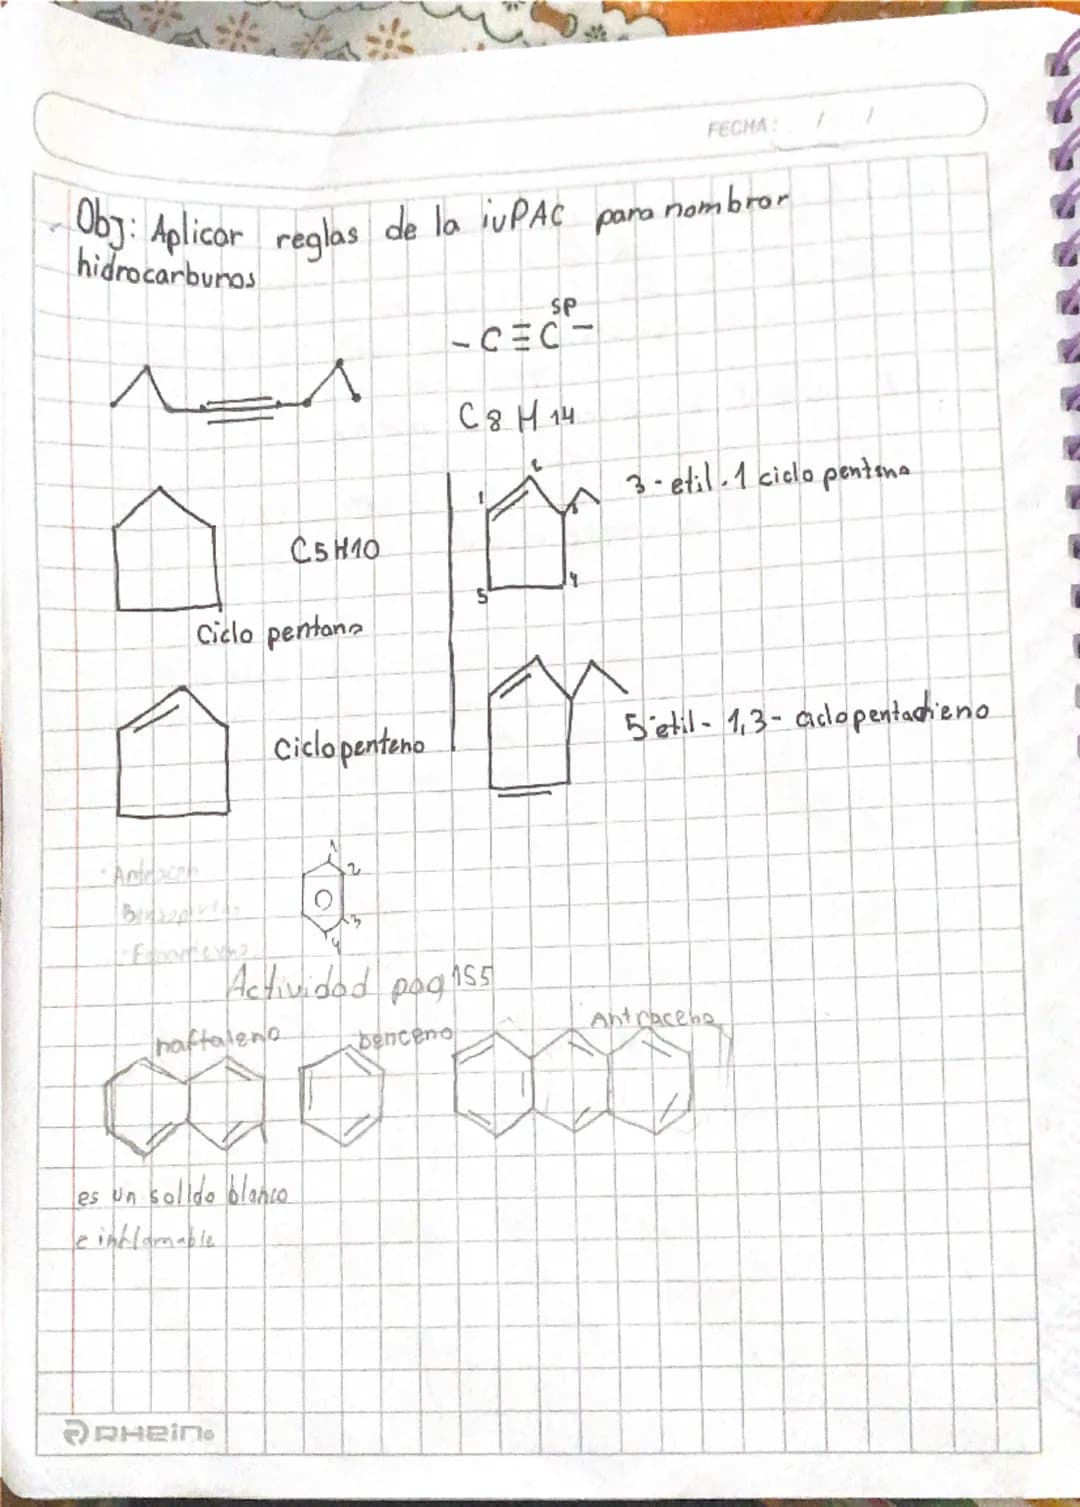 FECHA: / /
Obj: Aplicar reglas de la iUPAC para nombrar
hidrocarburos
sp
-C≡C-
C8H14
1
2
3
4
5
3-etil-1 ciclo penteno
C5H10
Ciclo pentano
Ciclopenteno
5-etil- 1,3- ciclopentadieno
1
2
3
4
Actividad pag 155
naftaleno
benceno
Antraceno
es un solido blanco
e inflamable
RHein